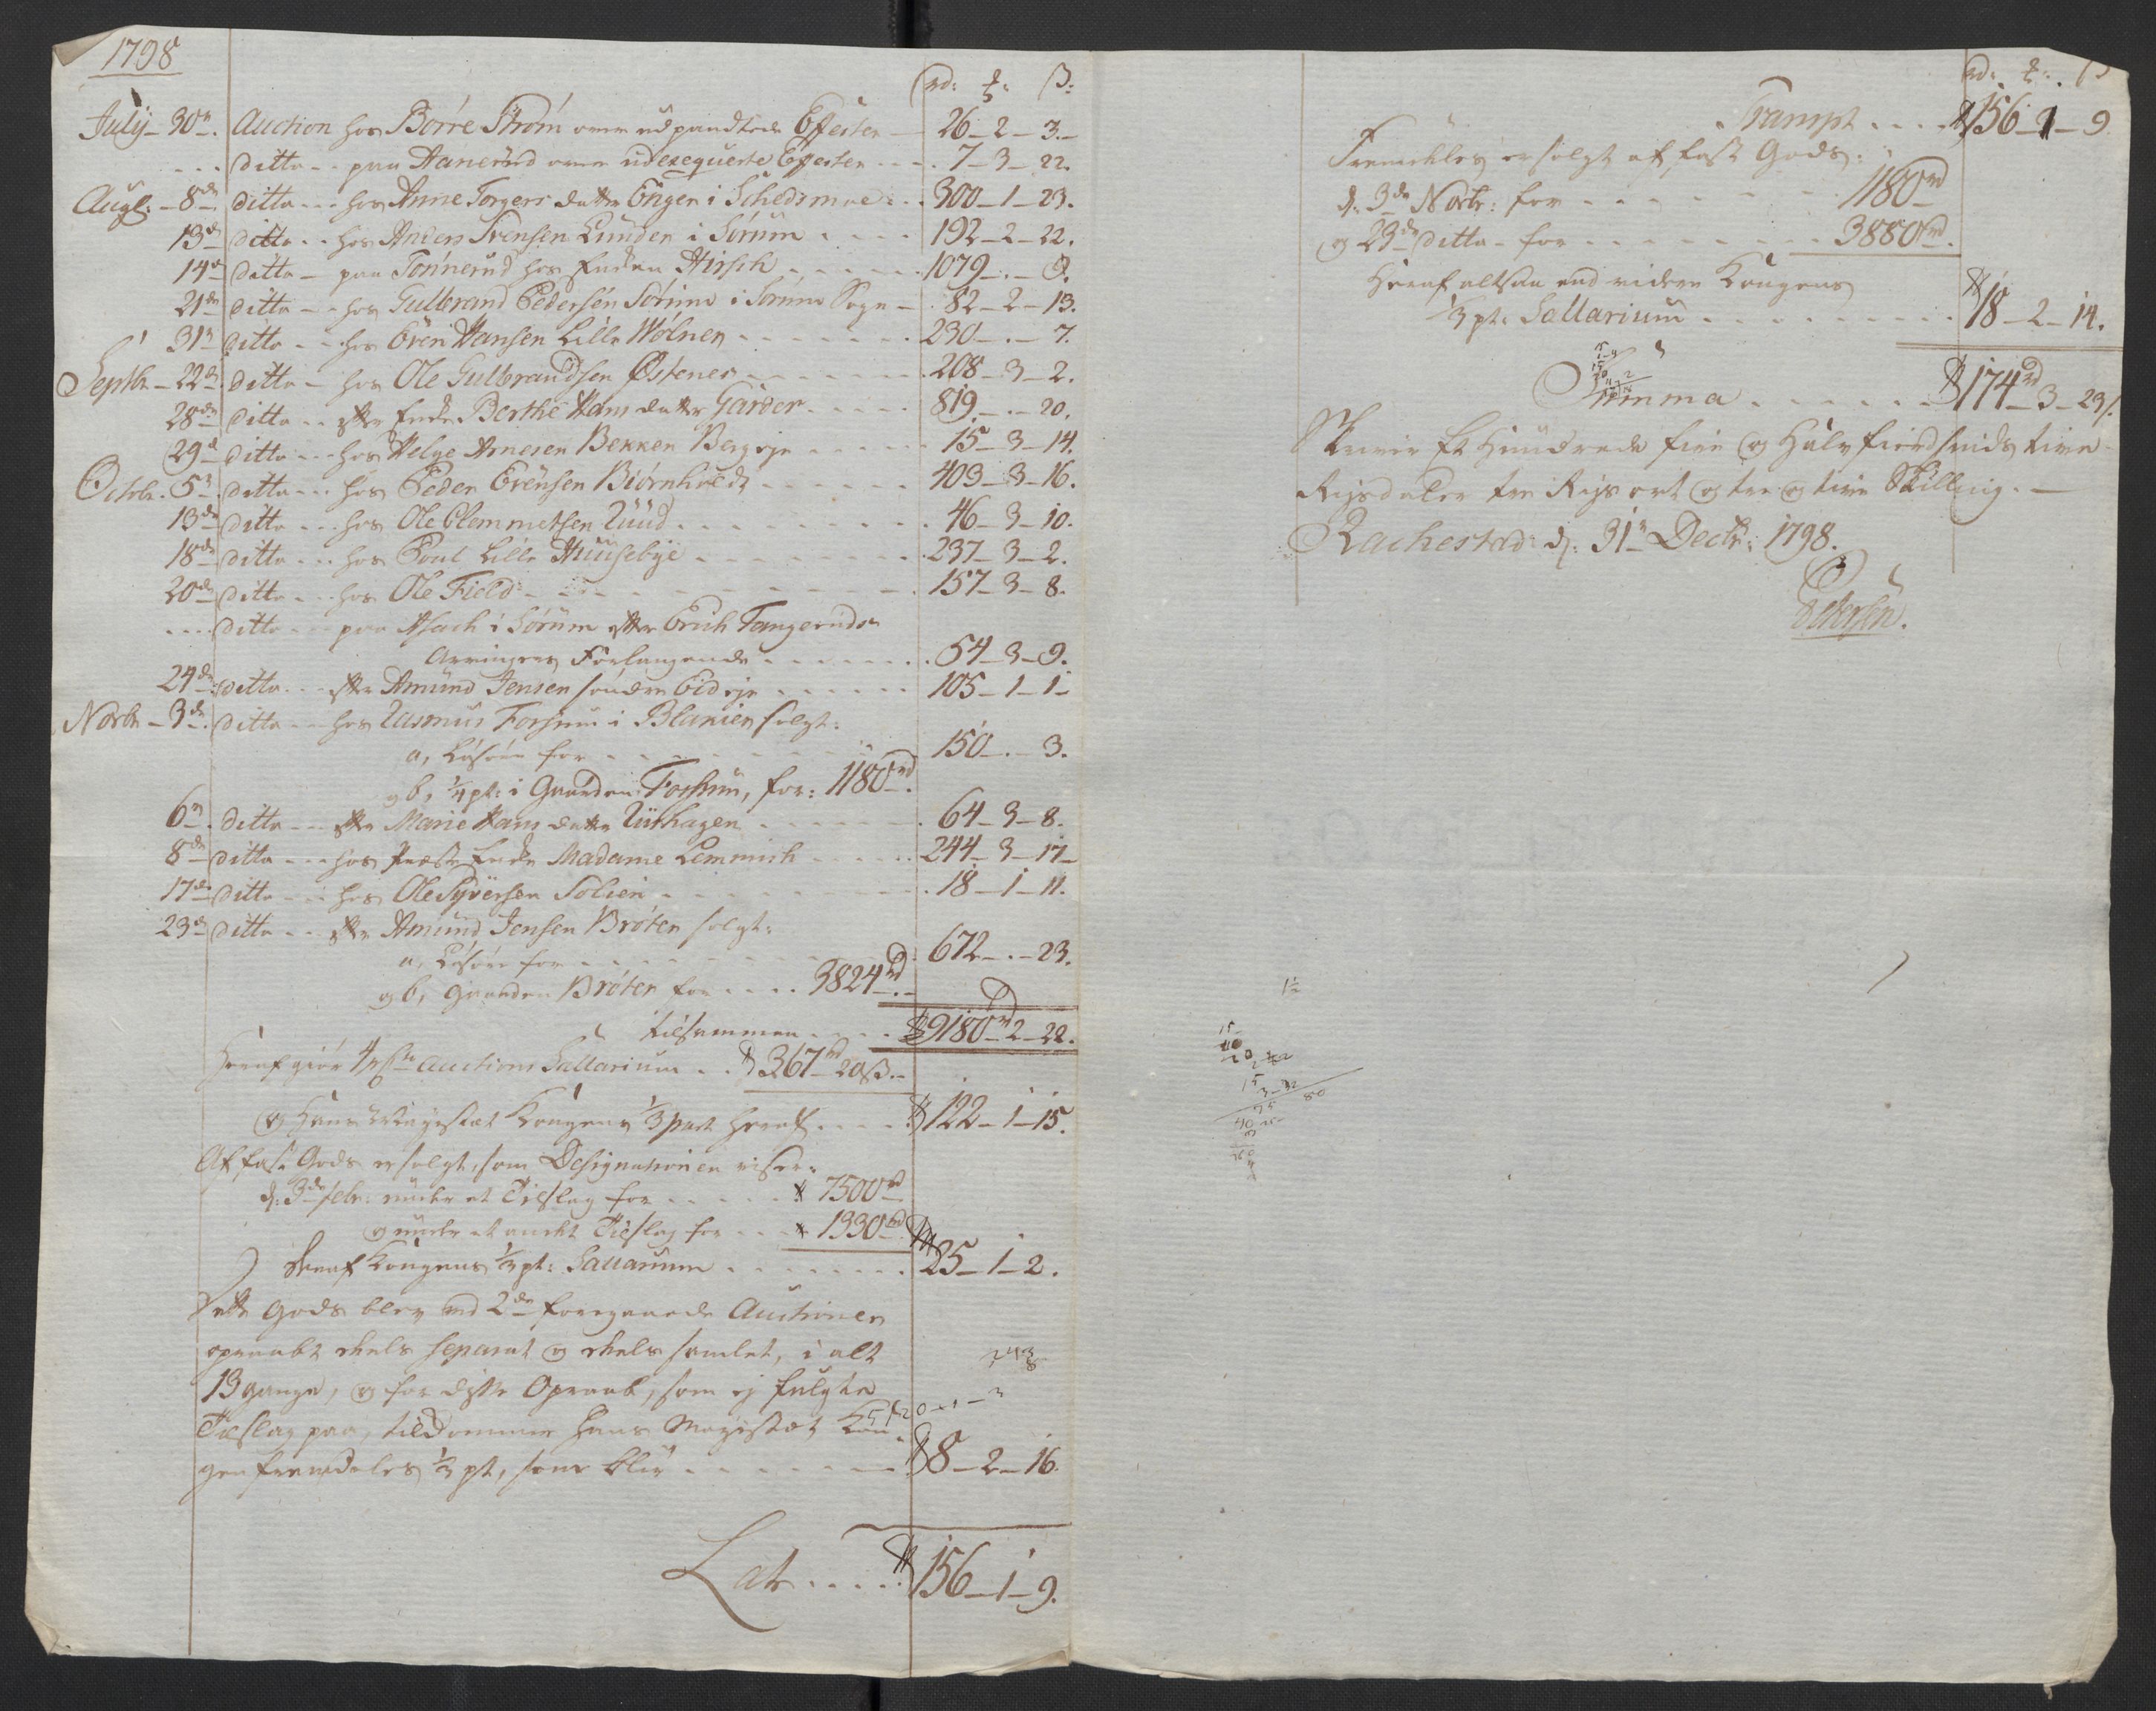 1798
rd: ort: ß:
July - 30te. Auction hos Börre Ström over udpandtede Effecter - 26 - 2 - 3.
ditto - - paa Hanerud over udexequerte Effecter - - . 7 - 3 - 22.
Augt: - 8de ditto - - - hos Anne Torgers datter Engen i Schedsmoe - 300 - 1 - 23.
13de ditto - - hos Anders Svensen Lunden i Sørum - - - - 192 - 2 - 22.
14de ditto - paa Tønnerud hos Enken Hirsch - - - - - 1079 - . - 9.
21de ditto - - hos Gulbrand Pedersen Sørum i Sørum Sogn - 82 - 2 - 13.
31te ditto - - hos Even Hansen Lille Wølner - - - - - - 230 - . - 7.
Septbr - 22de ditto - hos Ole Gulbrandsen Østener - - - - - - 208 - 3 - 2.
28de ditto - - efter Enken Berthe Hans datter Garder - - - - 819 - . - 20.
29de ditto - - - hos Helge Arnesen Bekken Berg eje - - - - - 15 - 3 - 14.
Octobr. 5te ditto - - - hos Peder Evensen Biørnholdt - - - - - - 403 - 3 - 16.
13de ditto - - - hos Ole Clemmetsen Ruud - - - - - - - - 46 - 3 - 10.
18de ditto - - - hos Poul Lille Huusebye - - - - - - - - 237 - 3 - 2.
20de ditto - - - hos Ole Field - - - - - - - - - 157 - 3 - 8.
- - - ditto - - - paa Asach i Sørum efter Erich Tangeruds
Arvingers Forlangende - - - - - - 54 - 3 - 9.
24de ditto - - - efter Amund Jensen søndre Eid eje - - - - - - 105 - 1 - 1 -
Novbr - 3de ditto - - - hos Rasmus Foshnu i Blanier solgt:
a, Løsøre for - - - - - - - - 150 - . - 3.
og b, 1/4 pt: i Gaarden Foshnu, for: 1180 rd.
6te ditto - - - efter Marie Hans datter Ruthagen - - - - - - 64 - 3 - 8.
8de ditto - - - hos Præste Enke Madame Lemmich - - - - - 244 - 3 - 17 -
17de ditto - - - hos Ole Syversen Solien - - - - - - - 18 - 1 - 11.
23de ditto - - - efter Amund Jensen Brøten solgt:
a, Løsøre for - - - - - - - - 672 - . - 23.
og b, Gaarden Brøten for - - - - 3824 rd.
tilsammen - - - - 9180 rd 2 - 22.
Heraf giør 4 pCto Auctions Sallarium - - 367 rd 20 ß. -
og Hans Majestæt Kongens 1/3 part heraf - - - - 122 - 1 - 15.
Af fast Gods er solgt, som Designationen viser:
d: 3de febr: under et Tilslag for - - - - - 7500 rd
og under et andet Tilslag for - - - 1330 rd
Heraf Kongens 1/3 pt: Sallarium - - - - - - - - 25 - 1 - 2.
Dette Gods blev ved 2de foregaaende Auctioner
opraabt deels separat og deels samlet, i alt
13 gange, og for disse Opraab, som ej fulgte
Tilslag paa, tilkommer Hans Majestæt Kon-
gen fremdeles 1/3 pt, som bliv - - - - - - - 8 - 2 - 16.
Lat - - - - - 156 - 1 - 9.
rd: ort: ß
Transpt - - - - 156 - 1 - 9
Fremdeles er solgt af fast Gods:
d: 3de Novbr: for - - - - - - 1180 rd
og 23de ditto - for - - - - - - - - 3880 rd.
Heraf altsaa end videre Kongens
1/3 pt: Sallarium - - - - - - - - - 18 - 2 - 14.
Summa - - - - - - 174 rd - 3 - 23 ß.
Skriver Et Hundrede fire og Halvfierdsindstive
Rigsdaler tre Rigs ort og tre og tive Skilling. -
Rachestad d: 31te Decbr: 1798.
Petersen.